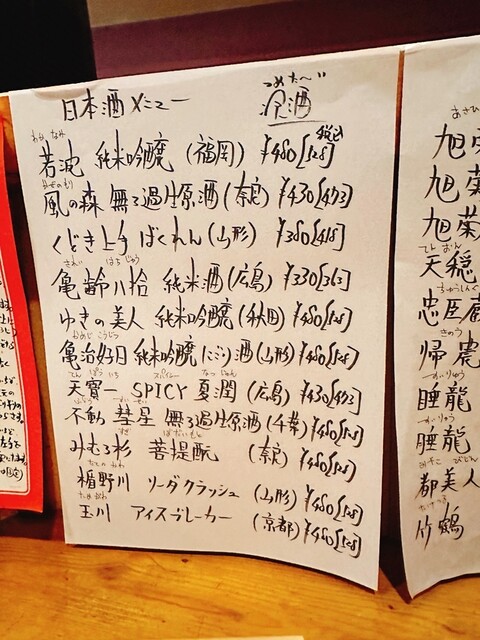 日本酒メニュー
つめた〜い
冷酒
税込
わか なみ
若波 純米吟醸 (福岡) ¥480[528]
かぜのもり
風の森 無ろ過生原酒 (奈良) ¥430[473]
くどき上手 ばくれん (山形) ¥380[418]
亀齢八拾 純米酒 (広島) ¥330[363]
ゆきの美人 純米吟醸 (秋田) ¥480[528]
かめじ こうじつ
亀治好日 純米吟醸にごり酒 (山形) ¥480[528]
天寶一 SPICY 夏潤 (広島) ¥430[473]
不動 彗星 無ろ過生原酒 (千葉) ¥480[528]
みむろ杉 菩提酛 (奈良) ¥480[528]
たての かわ
楯野川 ソーダクラッシュ (山形) ¥480[528]
たまがわ
玉川 アイスブレーカー (京都) ¥480[528]
あさひ
旭菊
旭菊
旭菊
てん おん
天穏
ちゅうしんぐ
忠臣蔵
きのう
帰農
がりゅう
睡龍
がりゅう
睡龍
みやこ びじん
都美人
たけつる
竹鶴